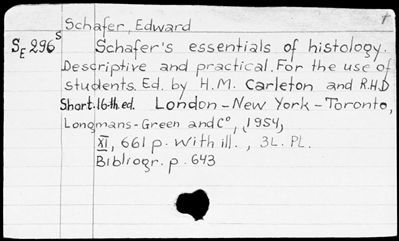 Schafer, Edward
SE 296 s Schafer's essentials of histology.
Descriptive and practical. For the use of
students. Ed. by H.M. Carleton and R.H.D
Short. 16-th ed. London-New York-Toronto,
Longmans-Green and Co, 1954,
XI, 661 p. with ill., 3L. PL.
Bibliogr. p. 643